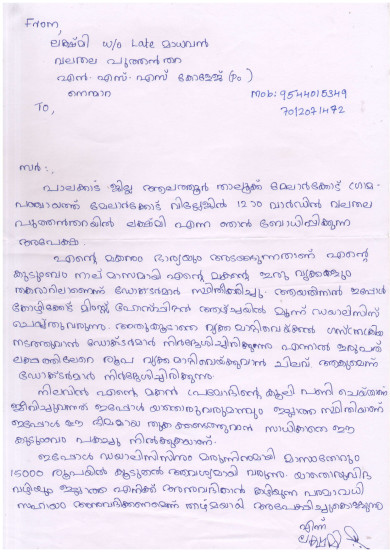 From,
ലക്ഷ്മി w/o Late മാധവൻ
വലതല പുത്തൻതറ
എൻ.എസ്.എസ് കോളേജ് (Po)
നെന്മാറ
Mob: 9544015349
7012071472
To,
സർ:,
പാലക്കാട് ജില്ല ആലത്തൂർ താലൂക്ക് മേലാർകോട് ഗ്രാമ-
പഞ്ചായത്ത് മേലാർകോട് വില്ലേജിൽ 12 ാo വാർഡിൽ വലതല
പുത്തൻതറയിൽ ലക്ഷ്മി എന്ന ഞാൻ ബോധിപ്പിക്കുന്ന
അപേക്ഷ.
എന്റെ മകനും ഭാര്യയും അടങ്ങുന്നതാണ് എന്റെ
കുടുംബം നാല് മാസമായി എന്റെ മകന്റെ ഇരു വൃക്കകളും
തകരാറിലാണെന്ന് ഡോക്ടർമാർ സ്ഥിരീകരിച്ചു. ആയതിനാൽ ഇപ്പോൾ
ഹോസ്പിറ്റൽ ആഴ്ചയിൽ മൂന്ന് ഡയാലിസിസ്
ചെയ്തുവരുന്നു. അതുകൂടാതെ വൃക്ക മാറ്റിവെക്കൽ ശസ്ത്രക്രിയ
നടത്തുവാൻ ഡോക്ടർമാർ നിർദ്ദേശിച്ചിരിക്കുന്നു എന്നാൽ ഇരുപത്
ലക്ഷത്തിലേറെ രൂപ വൃക്ക മാറ്റിവെയ്ക്കുവാൻ ചിലവ് ആകുമെന്ന്
ഡോക്ടർമാർ നിർദ്ദേശിച്ചിരിക്കുന്നു.
നിലവിൽ എന്റെ മകൻ കൂലി പണി ചെയ്താണ്
ജീവിച്ചിരുന്നത് ഇപ്പോൾ യാതൊരുവരുമാനവും ഇല്ലാത്ത സ്ഥിതിയാണ്
ഇപ്പോൾ ഈ ഭീമമായ തുക കണ്ടെത്തുവാൻ സാധിക്കാതെ ഈ
കുടുംബം പകച്ചു നിൽക്കുകയാണ്.
ഇപ്പോൾ ഡയാലിസിസിനും മരുന്നിനുമായി മാസംതോറും
15000 രൂപയിൽ കൂടുതൽ ആവശ്യമായി വരുന്നു. യാതൊരുവിധ
വഴിയും ഇല്ലാത്ത എനിക്ക് അനുവദിക്കാൻ കഴിയുന്ന പരമാവധി
സഹായം അനുവദിക്കണമെന്ന് താഴ്മയായി അപേക്ഷിച്ചുകൊള്ളുന്നു
എന്ന്
ലക്ഷ്മി